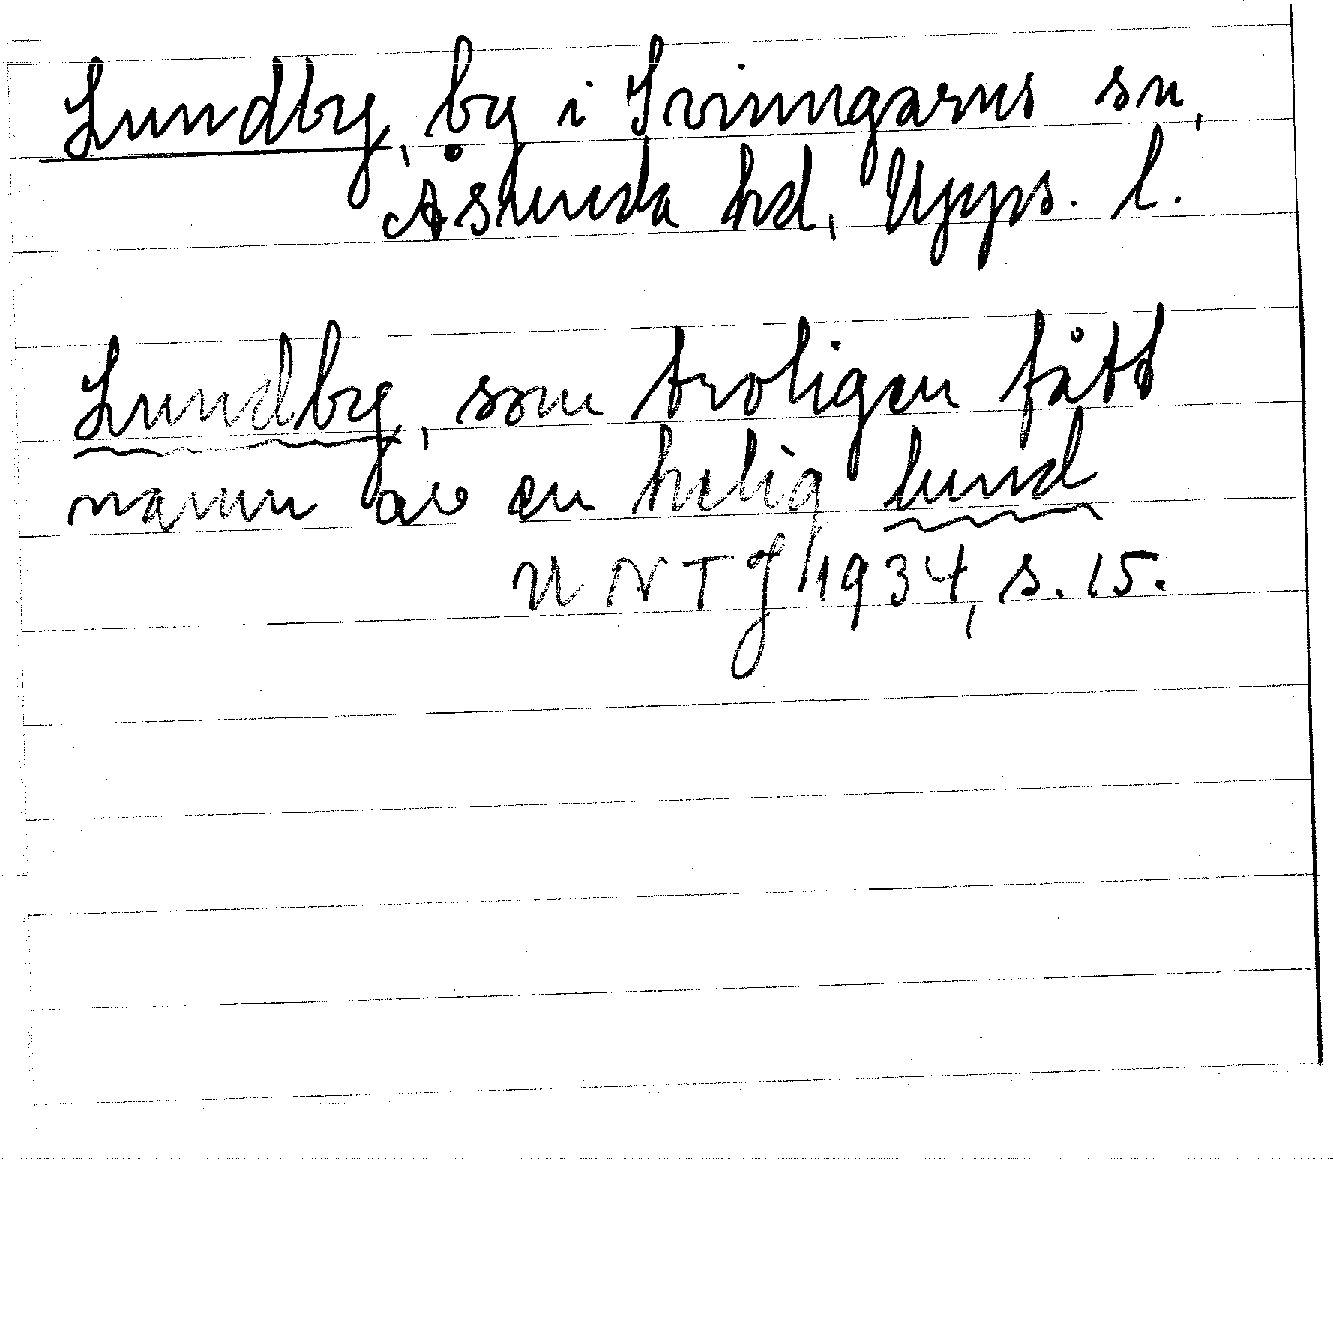 Lundby, by i Svinngarns sn,
Åsunda hd, Upps. l.
Lundby, som troligen fått
namn av en helig lund
UNTJ 1934, s. 15.